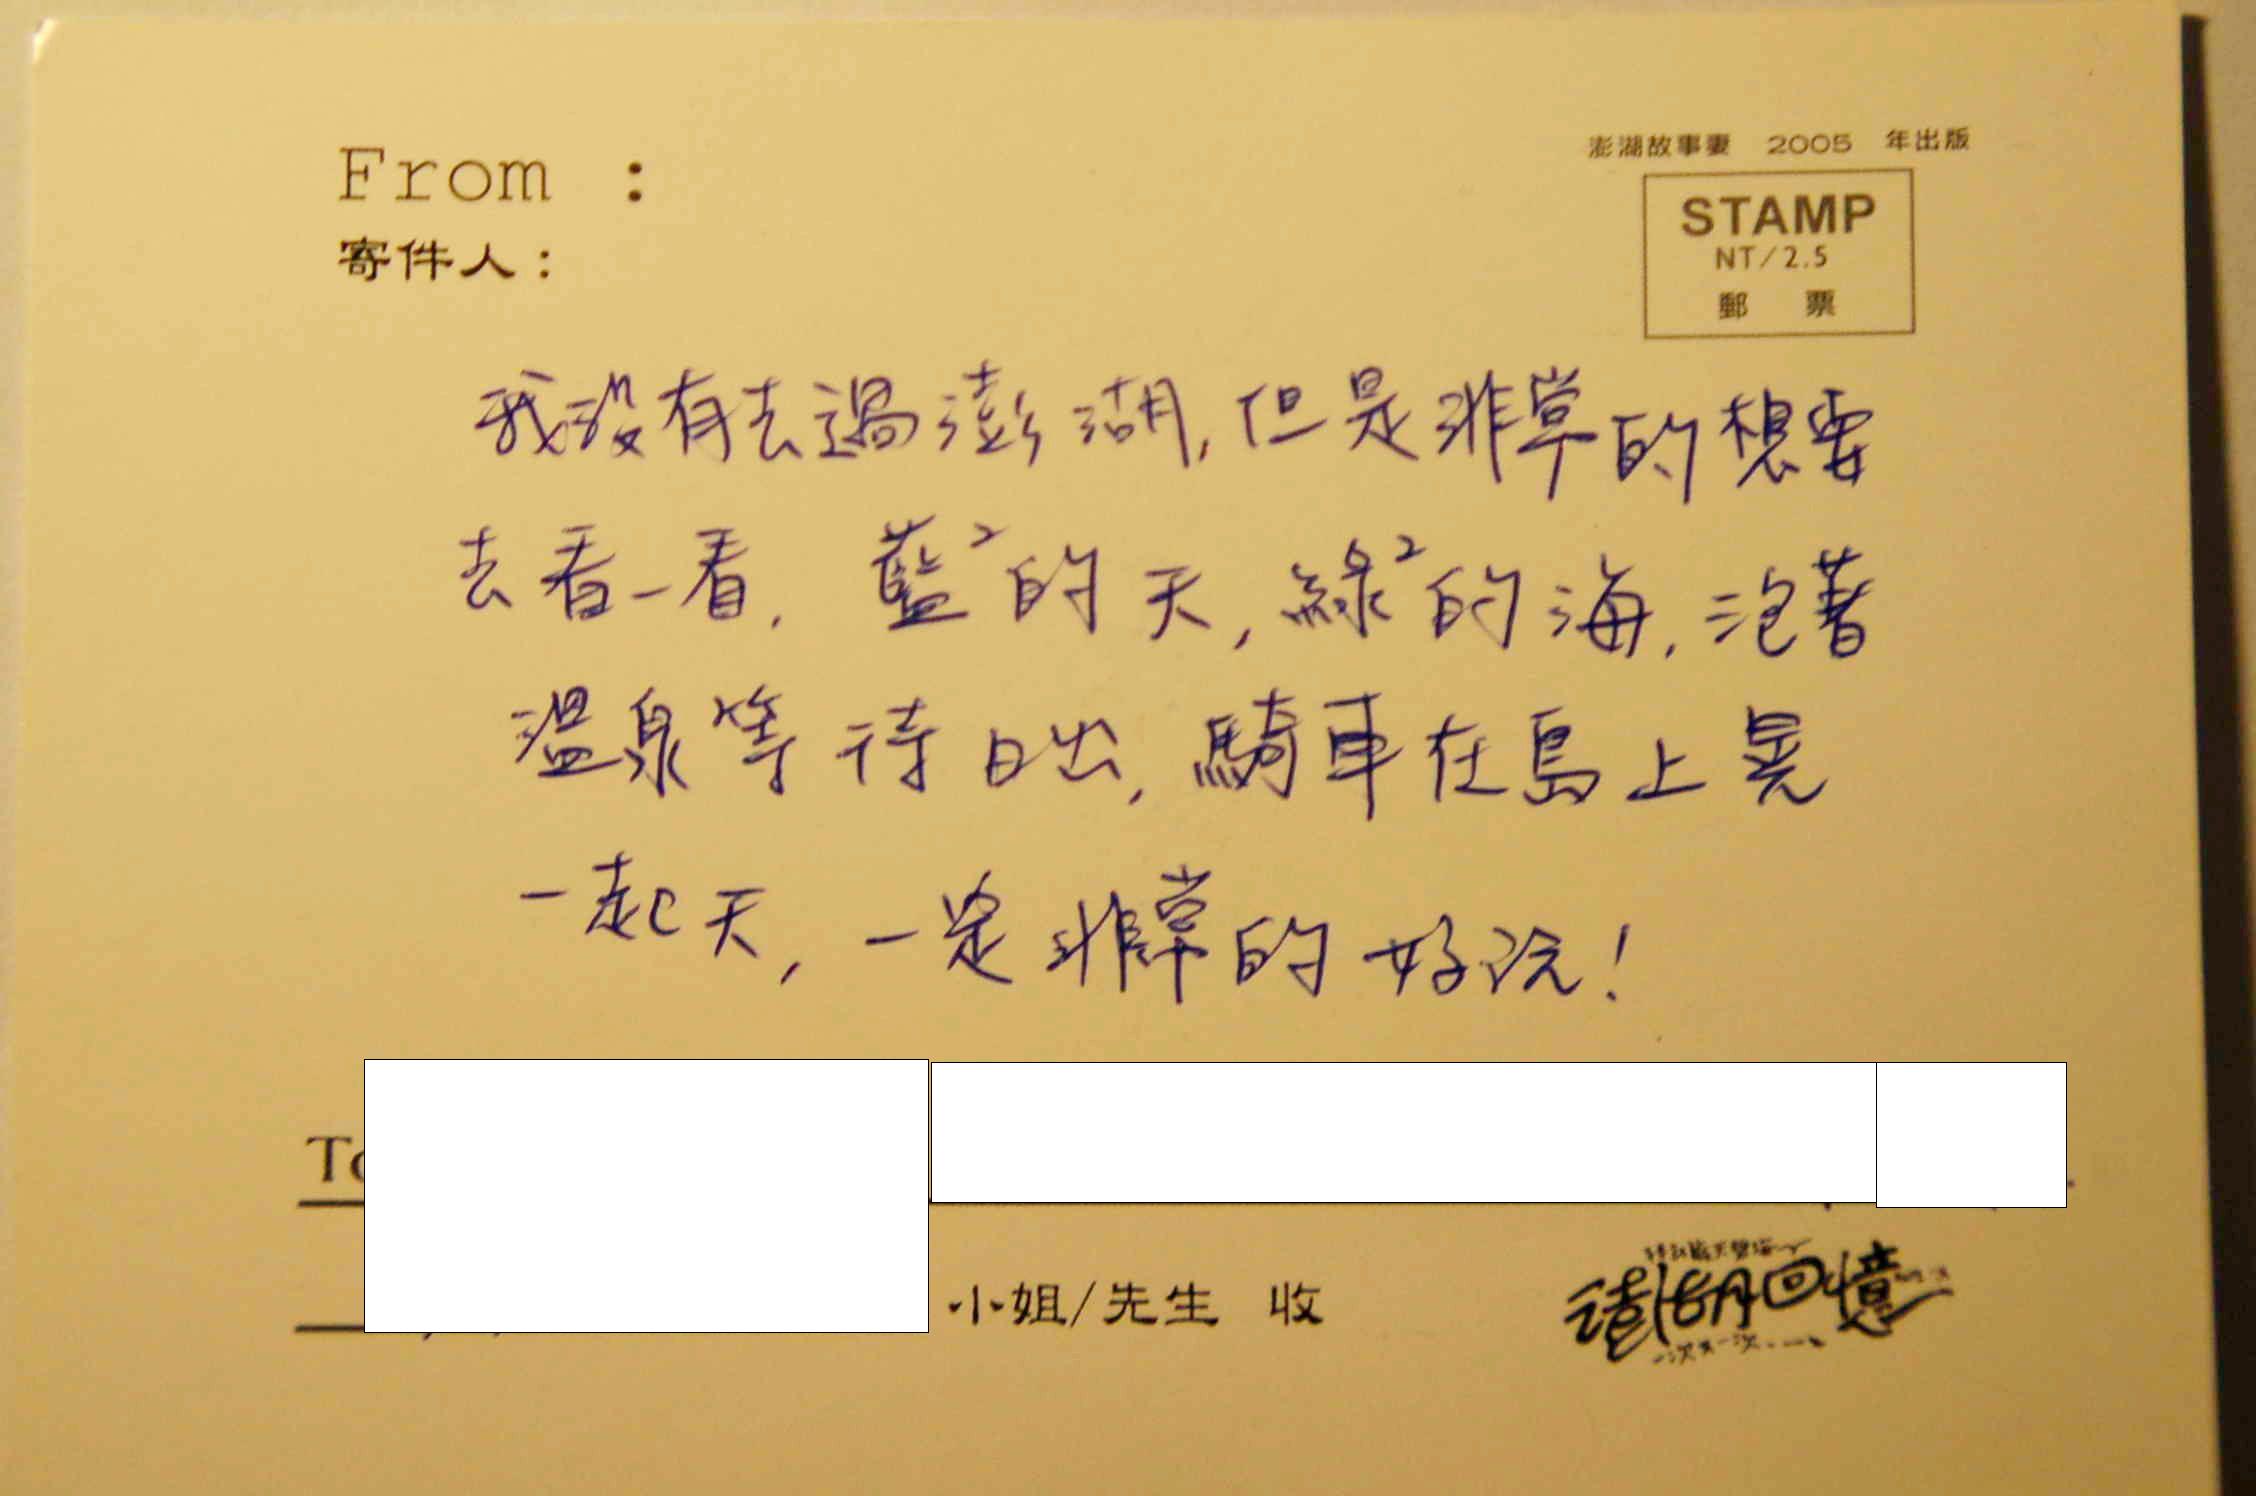 From :
寄件人：
澎湖故事妻 2005 年出版
STAMP
NT/2.5
郵 票
我沒有去過澎湖,但是非常的想要
去看一看, 藍²的天,綠²的海,泡著
溫泉等待日出,騎車在島上晃
一起天,一定非常的好玩!
小姐/先生 收
澎湖回憶
一次又一次